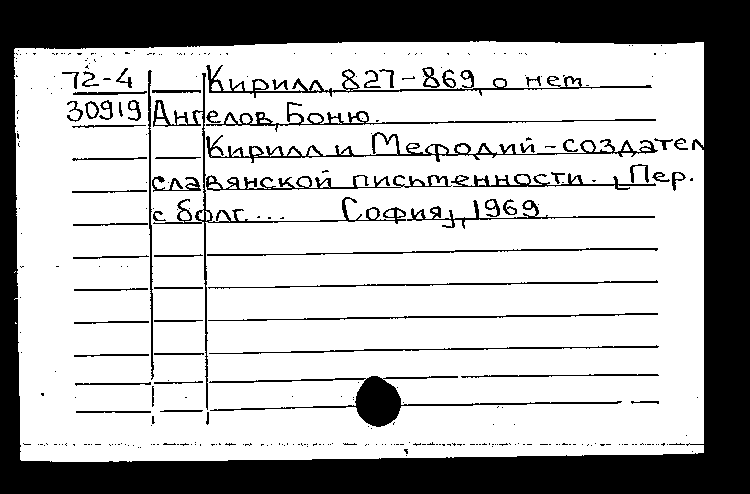 72-4 Кирилл, 827-869, о нем
30919 Ангелов, Боню.
Кирилл и Мефодий - создател
славянской письменности. [Пер.
с болг.... София], 1969.